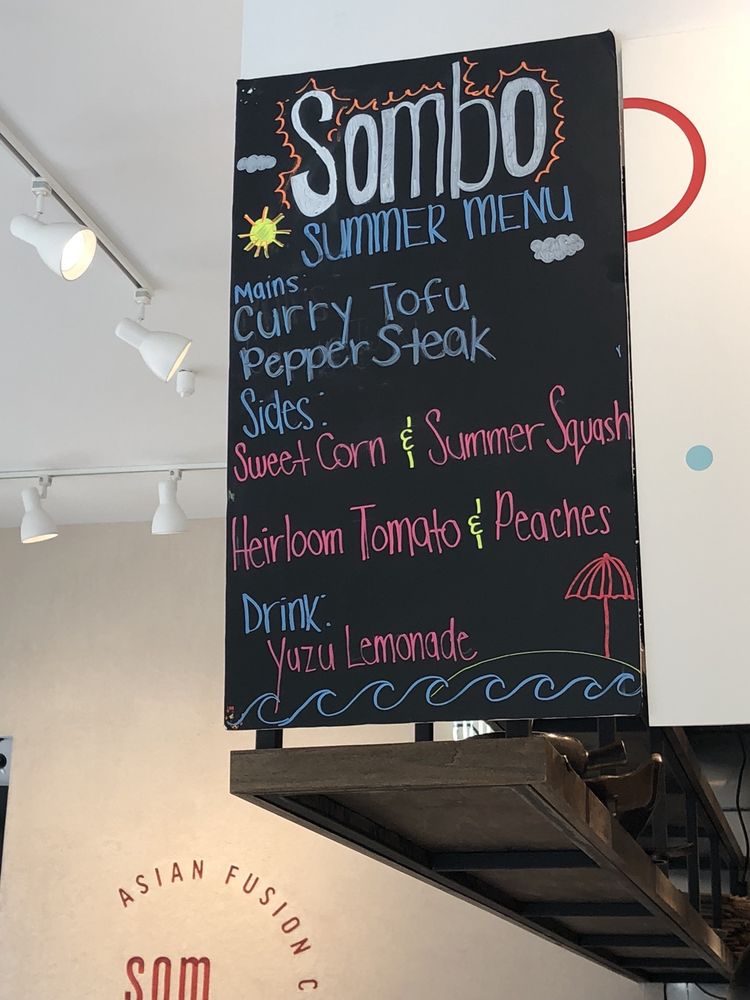 Sombo
SUMMER MENU
Mains:
Curry Tofu
Pepper Steak
Sides:
Sweet Corn & Summer Squash
Heirloom Tomato & Peaches
Drink:
Yuzu Lemonade
ASIAN FUSION C
som